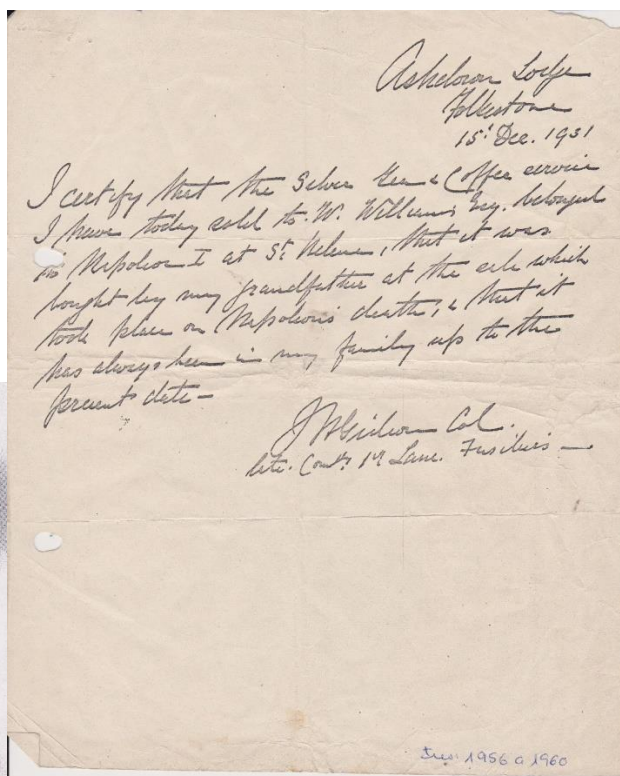 Ashdown Lodge
Folkestone
15' Dec. 1931
I certify that the Silver tea & Coffee service
I have today sold to W. Williams Esq. belonged
to Napoleon I at St Helena, that it was
bought by my grandfather at the sale which
took place on Napoleon's death, & that it
has always been in my family up to the
present date -
Col.
late. Comdg 1st Lanc. Fusiliers -
1956 a 1960